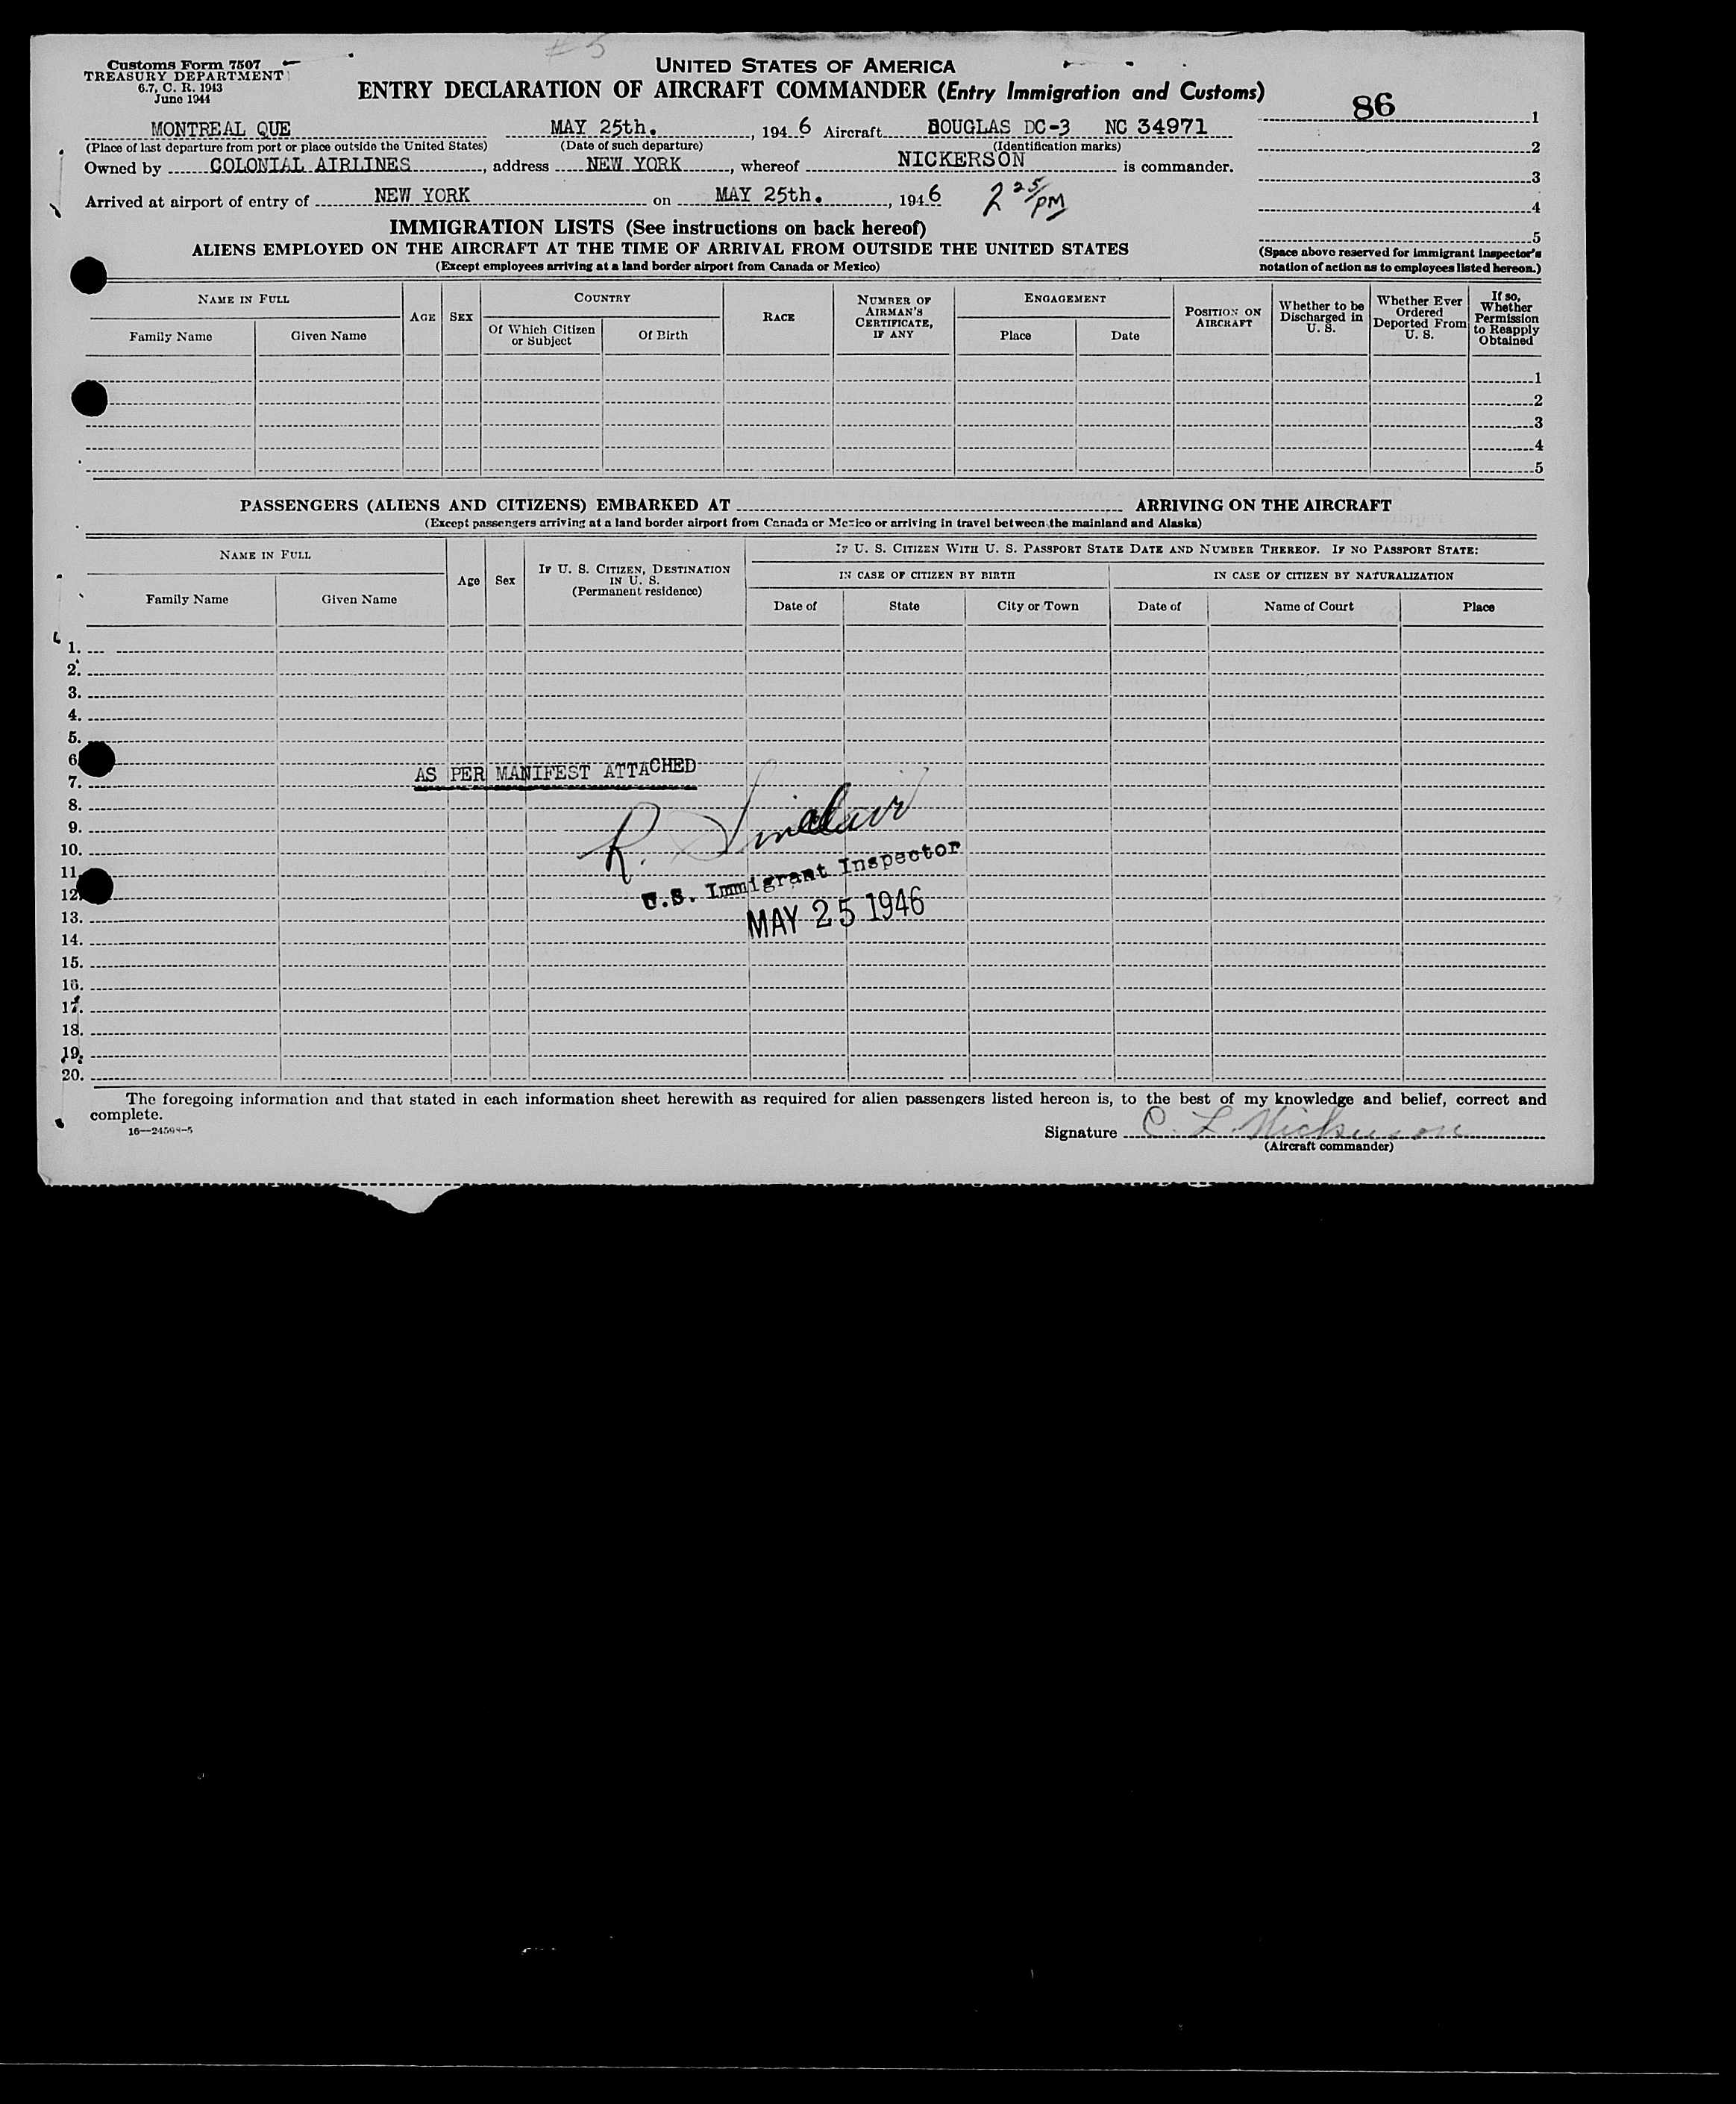 #5
Customs Form 7507
TREASURY DEPARTMENT
6.7, C. R. 1943
June 1944
UNITED STATES OF AMERICA
ENTRY DECLARATION OF AIRCRAFT COMMANDER (Entry Immigration and Customs)
86
1
2
3
4
5
MONTREAL QUE MAY 25th. , 1946 Aircraft DOUGLAS DC-3 NC 34971
(Place of last departure from port or place outside the United States) (Date of such departure) (Identification marks)
Owned by COLONIAL AIRLINES , address NEW YORK , whereof NICKERSON is commander.
Arrived at airport of entry of NEW YORK on MAY 25th. , 1946 2 25/PM
(Space above reserved for immigrant inspector's notation of action as to employees listed hereon.)
IMMIGRATION LISTS (See instructions on back hereof)
ALIENS EMPLOYED ON THE AIRCRAFT AT THE TIME OF ARRIVAL FROM OUTSIDE THE UNITED STATES
(Except employees arriving at a land border airport from Canada or Mexico)
NAME IN FULL
Family Name Given Name
AGE SEX
COUNTRY
Of Which Citizen or Subject Of Birth
RACE
NUMBER OF AIRMAN'S CERTIFICATE, IF ANY
ENGAGEMENT
Place Date
POSITION ON AIRCRAFT
Whether to be Discharged in U. S.
Whether Ever Ordered Deported From U. S.
If so, Whether Permission to Reapply Obtained
1
2
3
4
5
PASSENGERS (ALIENS AND CITIZENS) EMBARKED AT ARRIVING ON THE AIRCRAFT
(Except passengers arriving at a land border airport from Canada or Mexico or arriving in travel between the mainland and Alaska)
NAME IN FULL
Family Name Given Name
Age Sex
IF U. S. CITIZEN, DESTINATION IN U. S.
(Permanent residence)
IF U. S. CITIZEN WITH U. S. PASSPORT STATE DATE AND NUMBER THEREOF. IF NO PASSPORT STATE:
IN CASE OF CITIZEN BY BIRTH IN CASE OF CITIZEN BY NATURALIZATION
Date of State City or Town Date of Name of Court Place
1.
2.
3.
4.
5.
6
7.
AS PER MANIFEST ATTACHED
8.
9.
R. Sinclair
10.
11.
U.S. Immigrant Inspector
12.
13.
MAY 25 1946
14.
15.
16.
17.
18.
19.
20.
The foregoing information and that stated in each information sheet herewith as required for alien passengers listed hereon is, to the best of my knowledge and belief, correct and
complete.
16—24598-5
Signature C. L. Nickerson
(Aircraft commander)